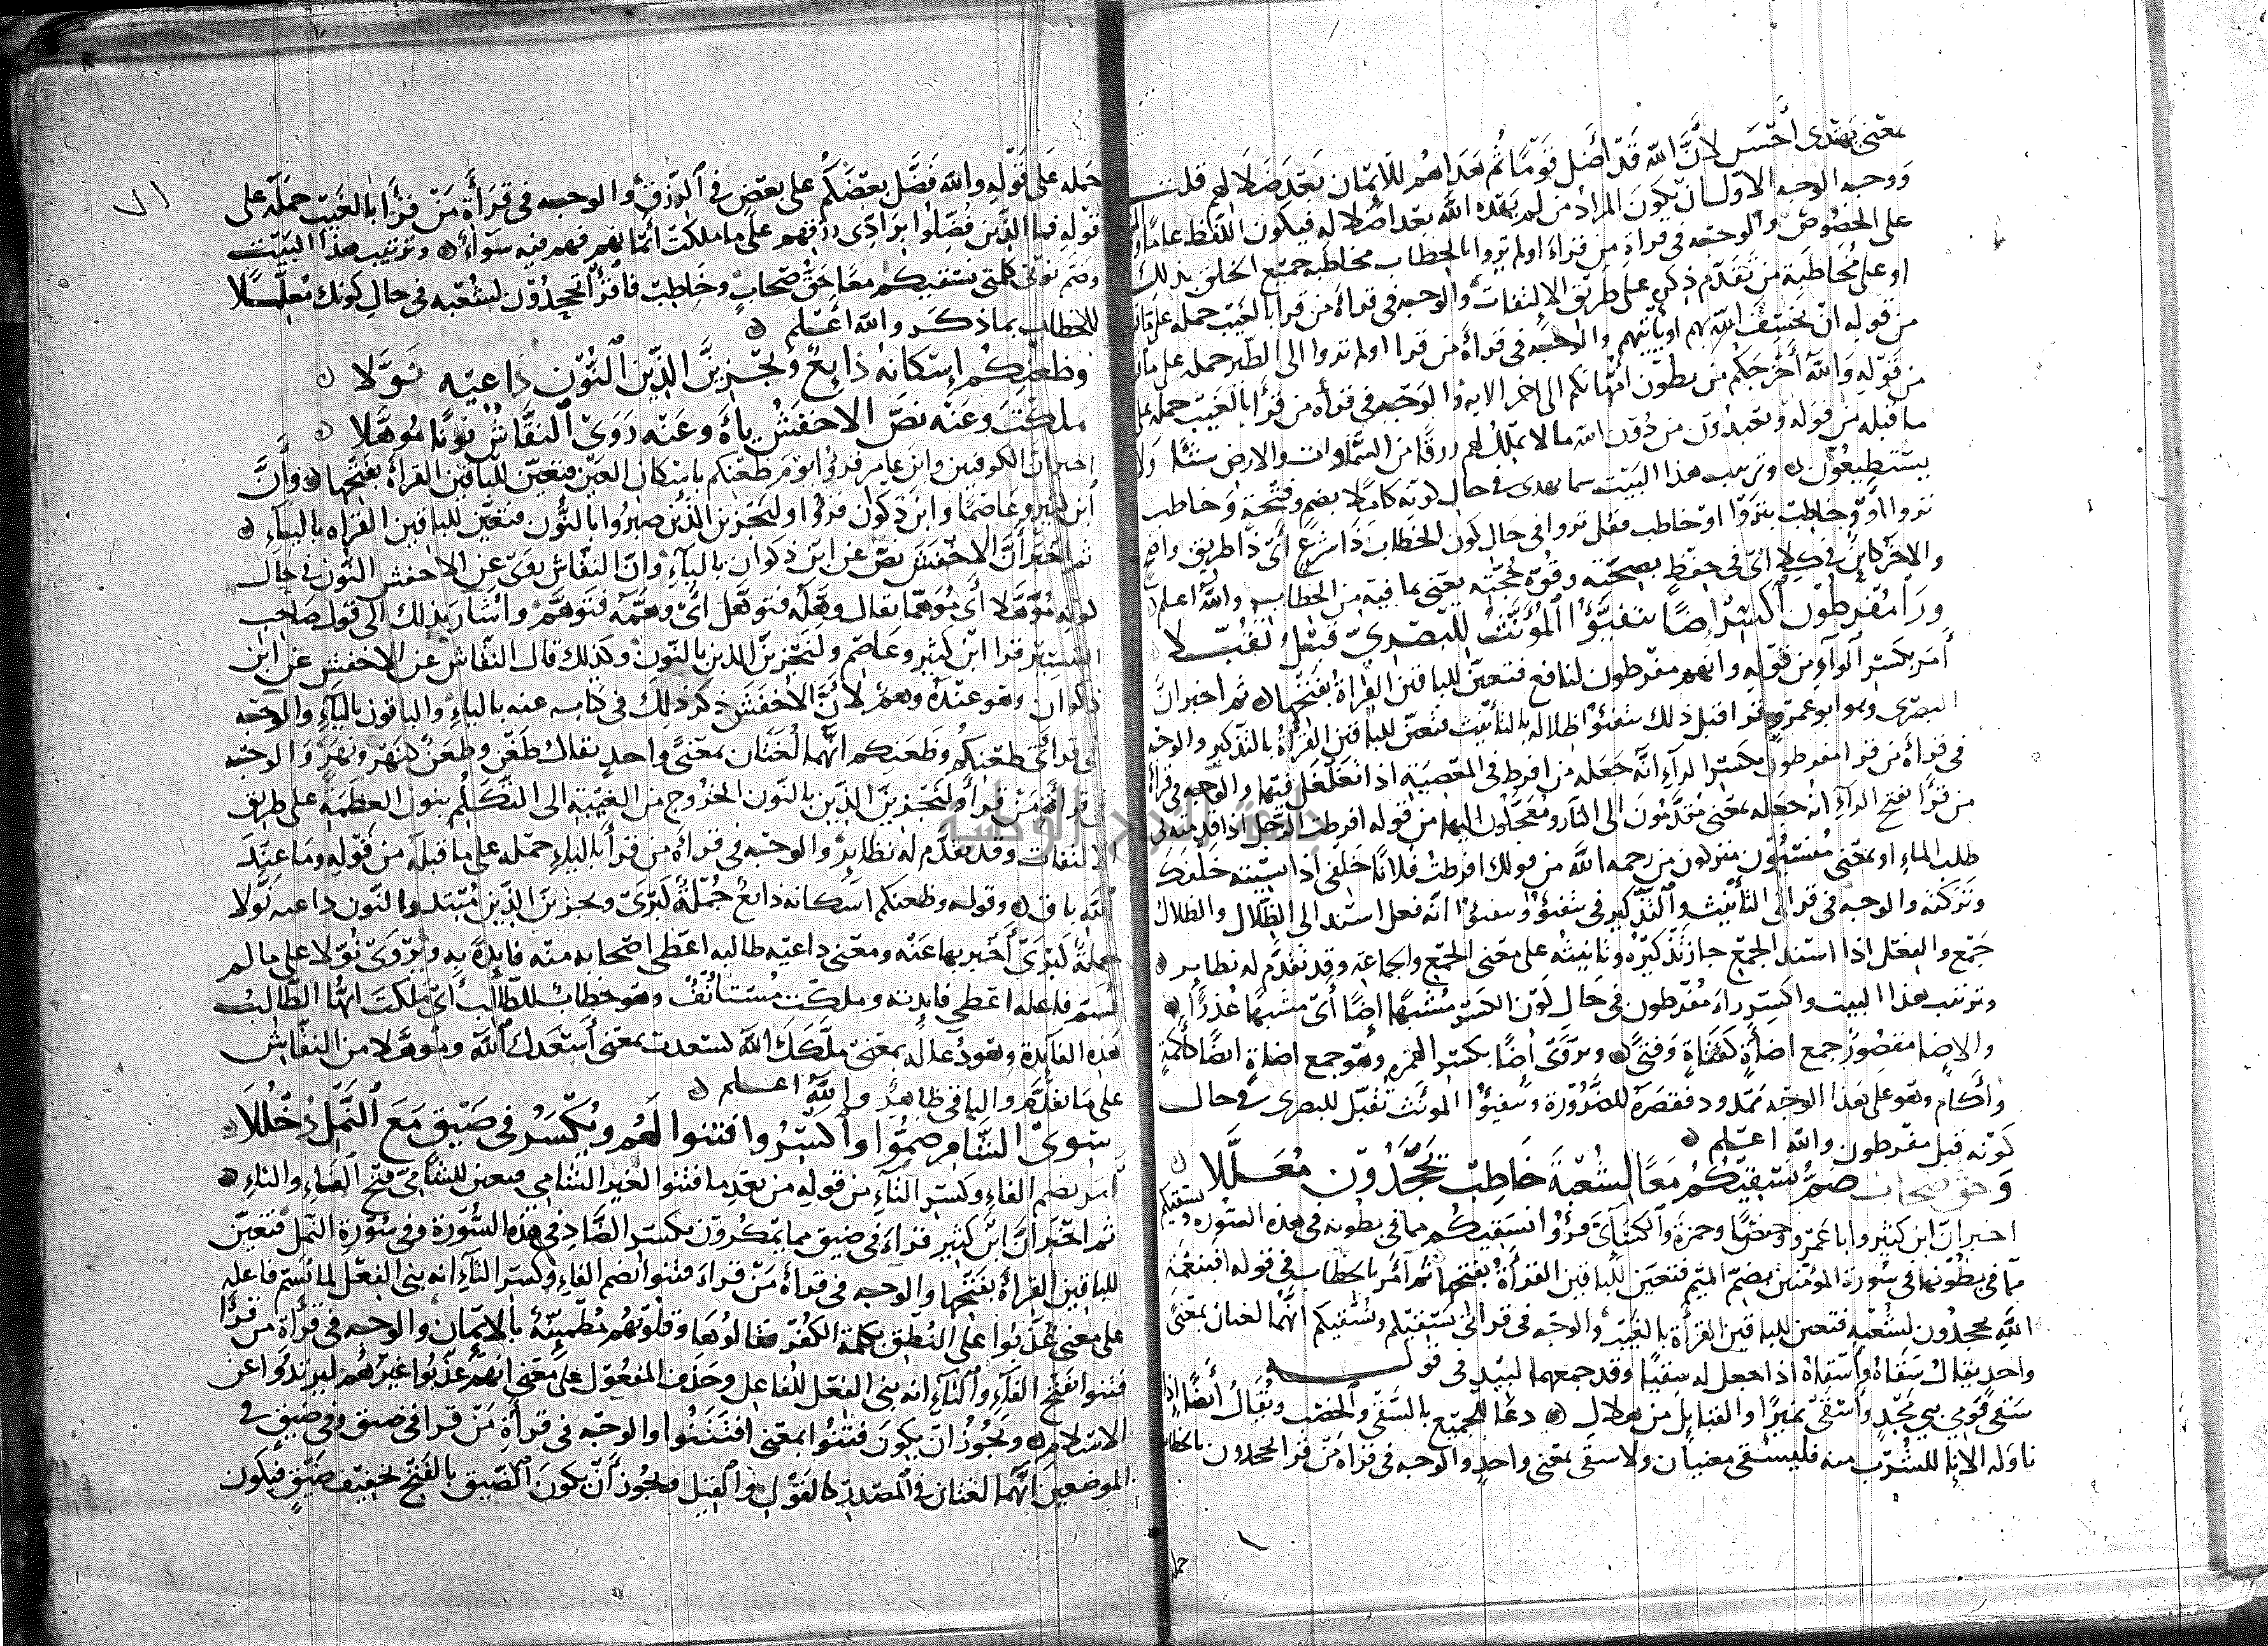 بمعنى يهتدى أحسن لأنّ الله قد أضل قومًا ثم هداهم للايمان بعد ضلالهم قلت
ووجه الوجه الاول ان يكون المراد من لم يهده الله بعد اضلاله فيكون اللفظ عاما
على الخصوص والوجه في قراة من قراء اولم تروا بالخطاب مخاطبه جميع الخلق بذلك
او على مخاطبة من تقدم ذكره على طريق الالتفات والوجه في قراة من قرا بالغيب حمله على
من قوله ان يخسف الله بهم او يأتيهم والوجه في قراة من قرا اولم تروا الى الطير حمله على
من قوله والله أخرجكم من بطون امهاتكم الى اخر الايه والوجه في قراه من قرأ بالغيب حمله على
ما قبله من قوله ويعبدون من دون الله ما لا يملك لهم رزقا من السموات والارض شئا ولا
يستطيعون وترتيب هذا البيت سما يهدى في حال كونه كاملا بضم وفتحة وخاطب
تروا او وخاطب يتروا او خاطب فقل تروا في حال كون الخطاب ذا شرع أى ذا طريق واضح
والاخر كاين في كلا أى في حفظ بصحته وقوة حجته يعنى بما فيه من الخطاب والله أعلم
ورا مفرطون أكسر اضا يتفيؤا المؤنث للبصرى قبل تقبلا
أمر بكسر الراء من قوله وانهم مفرطون لنافع فتعين للباقين القراة بفتحها ثم اخبر انّ
البصرى وهو ابو عمرو قرا قبل ذلك تتفيؤا ظلاله بالتأنيث فتعين للباقين القرأة بالتذكير والوجه
في قراة من قرا مفرطون بكسر الراء انه جعله من افرط في المعصية اذا تغلغل فيها والوجه في قراة
من قرا بفتح الراء انه جعله بمعنى مقدمون الى النار ومعجلون اليها من قوله افرطت الرجل اذا قدمته في
طلب الماء او بمعنى منسيون متروكون من رحمه الله من قولك افرطت فلانا خلفى اذا نسيته خلفك
وتركته والوجه في قراتى التأنيث والتذكير في تتفيؤ ويتفيؤا انه فعل اسند الى الظلال والظلال
جمع والفعل اذا اسند الجمع جاز تذكيره وتانيثه على معنى الجمع والجماعه وقد تقدم له نظاير
وترتيب هذا البيت واكسر راء مفرطون في حال كون الكسر مشبها اضا أى مشبها غدرا
والاضا مقصور جمع اضاة كقناة وقنى ويروى أضا بكسر الهمزه وهو جمع اضاة ايضا كاكمة
وأكام وهو على هذا الوجه ممدود فقصره للضرورة وتتفيؤا المونث تقبل للبصرى في حال
كونه قبل مفرطون والله اعلم
وحق صحاب ضم نسقيكم معا لشعبة خاطب تجحدون معللا
اخبر ان ابن كثير وابا عمرو وحفصا وحمزة والكسآئي قرؤا نسقيكم مما في بطونه في هذه السوره ونسقيكم
مما في بطونها في سورة المؤمنين بضم الميم فتعين للباقين القرأة بفتحها ثم أمر بالخطاب في قوله افبنعمة
الله يجحدون لشعبه فتعين للباقين القرأة بالغيب والوجه في قراتى نسقيكم ونسقيكم انهما لغتان بمعنى
واحد يقال سقاه وأسقاه اذا جعل له سقيا وقد جمعهما لبيد في قوله
سقى قومي بني مجد وأسقى نميرا والقبايل من هلال دعا للجميع بالسقى والخصب ويقال أيضا اذا
ناوله الاناء للشرب منه فليسقى معنيان ولاسقى بمعنى واحد والوجه في قراه من قرا تجحدون بالخطاب
حمله
حمله على قوله والله فضل بعضكم على بعض في الرزق والوجه في قرأة من قرأ بالغيب حمله على
قوله فما الذين فضلوا برادى رزقهم على ما ملكت أيمانهم فهم فيه سوآء وترتيب هذا البيت
وضم نونى كلمتى نسقيكم معا حق صحاب وخاطب فاقرأ تجحدون لشعبه في حال كونك معللا
للخطاب بما ذكر والله أعلم
وظعنكم إسكانه ذايع ونجزين الذين النون داعيه نولا
ملكت وعنه نص الاخفش ياءه وعنه روى النقاش نونا موهلا
اخبر ان الكوفين وابن عامر قرؤا يوم ظعنكم باسكان العين فتعين للباقين القرأة بفتحها وأنّ
ابن كثير وعاصما وابن ذكوان قرؤا ولنجزين الذين صبروا بالنون فتعين للباقين القراه بالياء
ثم اخبر أنّ الاخفش نص عن ابن ذكوان بالياء وانّ النقاش روى عن الاخفش النون في حال
كونه موهلا أى موهما يقال وهله فتوهل أى وهمه فتوهم واشار بذلك الى قول صاحب
التيسير قرا ابن كثير وعاصم ولنجزين الذين بالنون وكذلك قال النقاش عن الاخفش عن ابن
ذكوان وهو عندى وهم لأنّ الاخفش ذكر ذلك في كتابه عنه بالياء والباقون بالياء والوجه
في قراتى ظعنكم وظعنكم انهما لغتان بمعنى واحد يقال ظعن وظعن كنهر ونهر والوجه
في قرأة من قرأ ولنجزين الذين بالنون الخروج من الغيبة الى التكلم بنون العظمة على طريق
الالتفات وقد تقدم له نظاير والوجه في قرأة من قرأ بالياء حمله على ما قبله من قوله وما عند
الله باق وقوله وظعنكم اسكانه ذايع جملة كبرى ونجزين الذين مبتدا والنون داعيه نولا
جملة كبرى أخبر بها عنه ومعنى داعيه طالبه اعطى اصحابه منه فايدة به ويروى نولا على ما لم
يسم فاعله اعطى فايدته وملكت مستأنف وهو خطاب للطالب أى ملكت ايها الطالب
هذه الفايدة وهو دعا له بمعنى ملكك الله كسعدت بمعنى أسعدك الله وموهلا من النقاش
على ما تقدم والباقي ظاهر والله اعلم
سوى الشام ضموا واكسروا فتنوا لهم ويكسر في ضيق مع النمل دخللا
أمر بضم الفاء وكسر التاء من قوله من بعد ما فتنوا لغير الشامي فتعين للشامي فتح الفاء والتاء
ثم اخبر أنّ ابن كثير قراء في ضيق مما يمكرون بكسر الضاد في هذه السورة وفي سورة النمل فتعين
للباقين القرأة بفتحها والوجه في قرأة من قراء فتنوا بضم الفاء وكسر التاء انه بنى الفعل لما لم يسم فاعله
على معنى عذبوا على النطق بكلمة الكفر فقالوها وقلوبهم مطمينة بالايمان والوجه في قرأة من قرأ
فتنوا بفتح الفاء والتاء انه بنى الفعل للفاعل وحذف المفعول على معنى انهم عذبوا غيرهم ليرتدوا عن
الاسلام ويجوز ان يكون فتنوا بمعنى افتتنوا والوجه في قرأة من قرا في ضيق وفي ضيق في
الموضعين انهما لغتان في المصدر كالقول والقيل ويجوز أن يكون الضيق بالفتح تخفيف ضيق فيكون